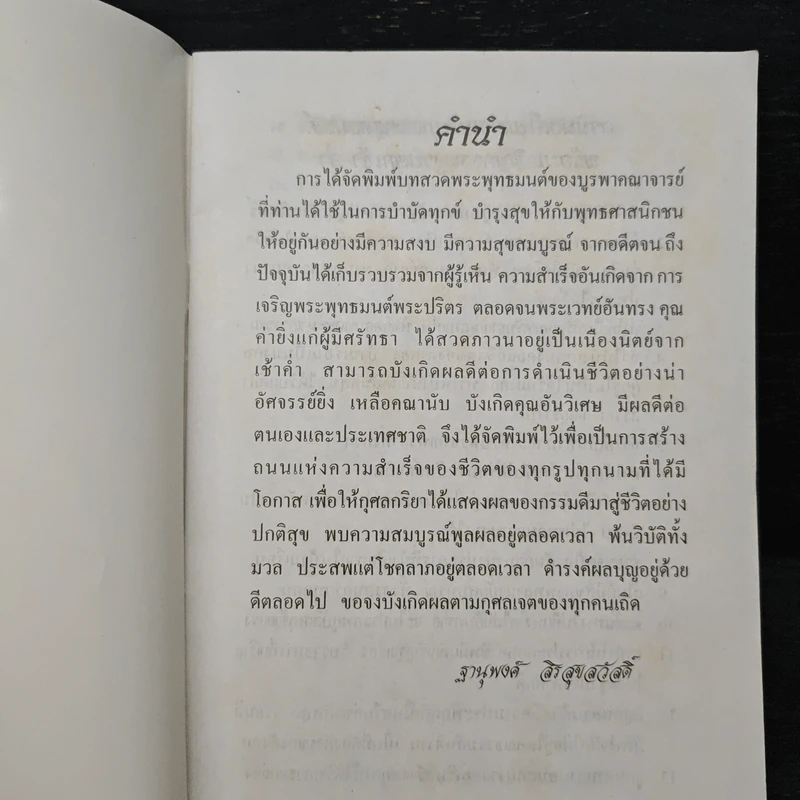 คำนำ
การได้จัดพิมพ์บทสวดพระพุทธมนต์ของบูรพาคณาจารย์
ที่ท่านได้ใช้ในการบำบัดทุกข์ บำรุงสุขให้กับพุทธศาสนิกชน
ให้อยู่กันอย่างมีความสงบ มีความสุขสมบูรณ์ จากอดีตจน ถึง
ปัจจุบันได้เก็บรวบรวมจากผู้รู้เห็น ความสำเร็จอันเกิดจาก การ
เจริญพระพุทธมนต์พระปริตร ตลอดจนพระเวทย์อันทรง คุณ
ค่ายิ่งแก่ผู้มีศรัทธา ได้สวดภาวนาอยู่เป็นเนืองนิตย์จาก
เช้าค่ำ สามารถบังเกิดผลดีต่อการดำเนินชีวิตอย่างน่า
อัศจรรย์ยิ่ง เหลือคณานับ บังเกิดคุณอันวิเศษ มีผลดีต่อ
ตนเองและประเทศชาติ จึงได้จัดพิมพ์ไว้เพื่อเป็นการสร้าง
ถนนแห่งความสำเร็จของชีวิตของทุกรูปทุกนามที่ได้มี
โอกาส เพื่อให้กุศลกริยาได้แสดงผลของกรรมดีมาสู่ชีวิตอย่าง
ปกติสุข พบความสมบูรณ์พูลผลอยู่ตลอดเวลา พ้นวิบัติทั้ง
มวล ประสพแต่โชคลาภอยู่ตลอดเวลา ดำรงค์ผลบุญอยู่ด้วย
ดีตลอดไป ขอจงบังเกิดผลตามกุศลเจตของทุกคนเถิด
ฐานุพงศ์ สิรสุขสวัสดิ์